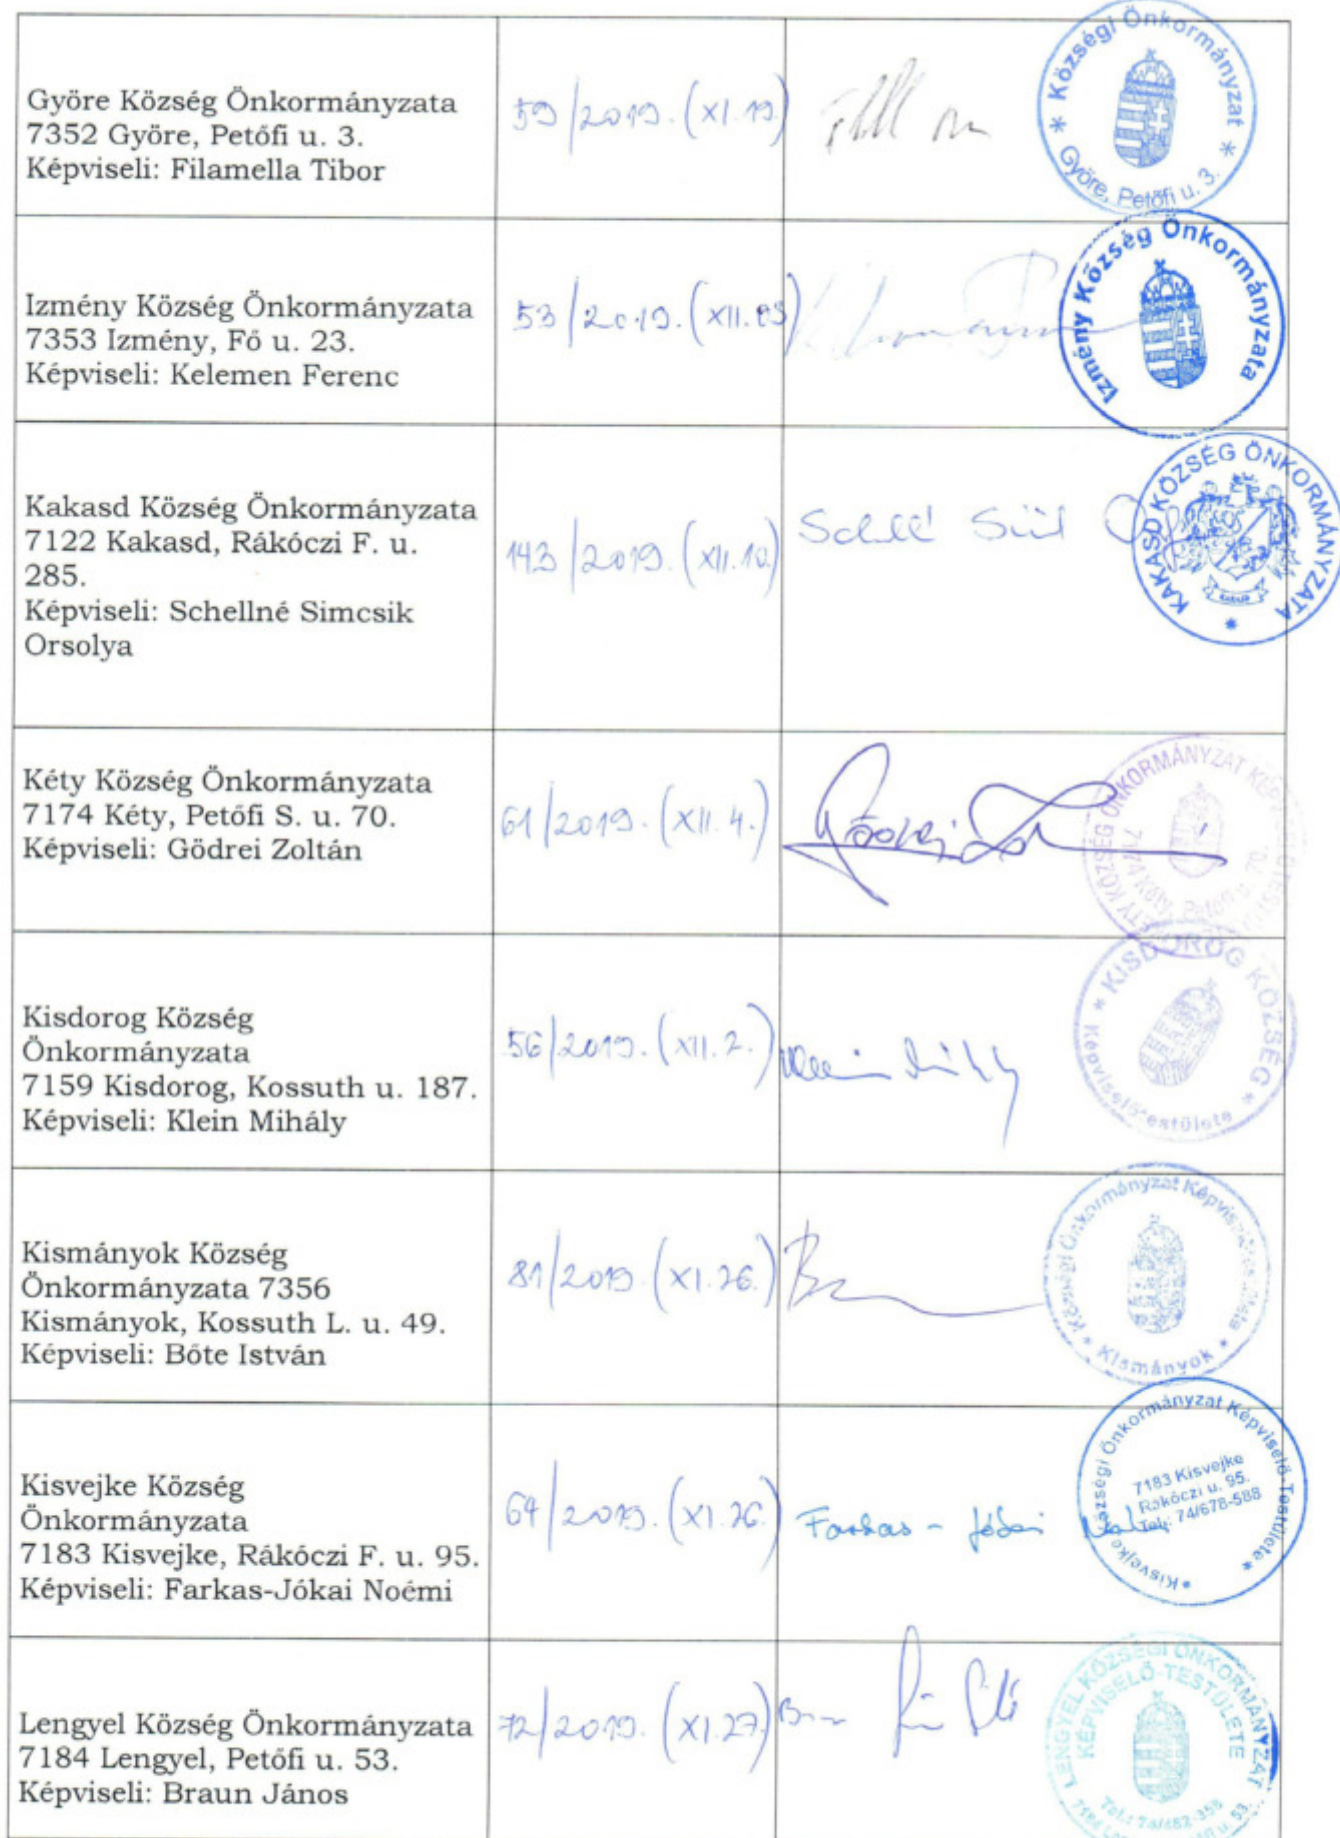 Györe Község Önkormányzata
7352 Györe, Petőfi u. 3.
Képviseli: Filamella Tibor
59/2019. (XI.19.)
* Községi Önkormányzat *
Györe, Petőfi u. 3.
Izmény Község Önkormányzata
7353 Izmény, Fő u. 23.
Képviseli: Kelemen Ferenc
53/2019. (XII.03)
Izmény Község Önkormányzata
Kakasd Község Önkormányzata
7122 Kakasd, Rákóczi F. u.
285.
Képviseli: Schellné Simcsik
Orsolya
143/2019. (XII.10.)
KAKASD KÖZSÉG ÖNKORMÁNYZATA
Kéty Község Önkormányzata
7174 Kéty, Petőfi S. u. 70.
Képviseli: Gödrei Zoltán
61/2019. (XII.4.)
KÉTY KÖZSÉG ÖNKORMÁNYZAT
7174 Kéty, Petőfi u. 70.
Kisdorog Község
Önkormányzata
7159 Kisdorog, Kossuth u. 187.
Képviseli: Klein Mihály
56/2019. (XII.2.)
Klein Mihály
* KISDOROG KÖZSÉG *
Képviselőtestülete
Kismányok Község
Önkormányzata 7356
Kismányok, Kossuth L. u. 49.
Képviseli: Bőte István
81/2019. (XI.26.)
Községi Önkormányzat Képviselőtestülete
* Kismányok *
Kisvejke Község
Önkormányzata
7183 Kisvejke, Rákóczi F. u. 95.
Képviseli: Farkas-Jókai Noémi
64/2019. (XI.26.)
Farkas - Jókai
Községi Önkormányzat Képviselő-Testülete
* Kisvejke *
7183 Kisvejke
Rákóczi u. 95.
Tel.: 74/678-588
Lengyel Község Önkormányzata
7184 Lengyel, Petőfi u. 53.
Képviseli: Braun János
72/2019. (XI.27)
LENGYEL KÖZSÉGI ÖNKORMÁNYZAT
KÉPVISELŐ-TESTÜLETE